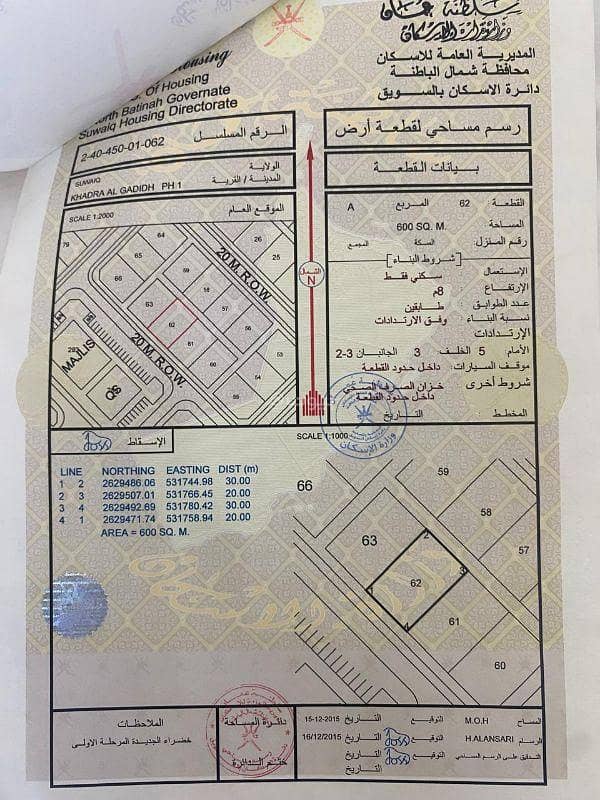 سلطنة عمان
وزارة الاسكان
المديرية العامة للاسكان
محافظة شمال الباطنة
دائرة الاسكان بالسويق
Housing
Of Housing
North Batinah Governate
Suwaiq Housing Directorate
الرقم المسلسل
2-40-450-01-062
رسم مساحي لقطعة أرض
بيانات القطعة
الولاية
SUWAIQ
المدينة / القرية
KHADRA AL GADIDH PH 1
الموقع العام
SCALE 1:2000
القطعة 62 المربع A
المساحة 600 SQ. M.
رقم المنزل السكة المجمع
شروط البناء
الإستعمال سكني فقط
الإرتفاع 8م
عدد الطوابق طابقين
نسبة البناء وفق الارتدادات
الإرتدادات
الأمام 5 الخلف 3 الجانبان 3-2
موقف السيارات: داخل حدود القطعة
شروط أخرى خزان الصرف الصحي
داخل حدود القطعة
المخطط التاريخ
وزارة الاسكان
الشمال
N
79
64
26
25
65
20 M. R.O.W
66
59
58
63
57
62
61
20 M. R.O.W
60
59
54
MAJLIS
الإسقاط
SCALE 1:1000
LINE NORTHING EASTING DIST (m)
1 2 2629486.06 531744.98 30.00
2 3 2629507.01 531766.45 20.00
3 4 2629492.69 531780.42 30.00
4 1 2629471.74 531758.94 20.00
AREA = 600 SQ. M.
66
59
58
57
63
62
61
60
1
2
3
4
الملاحظات
خضراء الجديدة المرحلة الاولى
دائرة المساحة
ختم الدائرة
المساح M.O.H التوقيع التاريخ 15-12-2015
الرسام H.ALANSARI التوقيع التاريخ 16/12/2015
التدقيق على الرسم المساحي التوقيع التاريخ
التاريخ